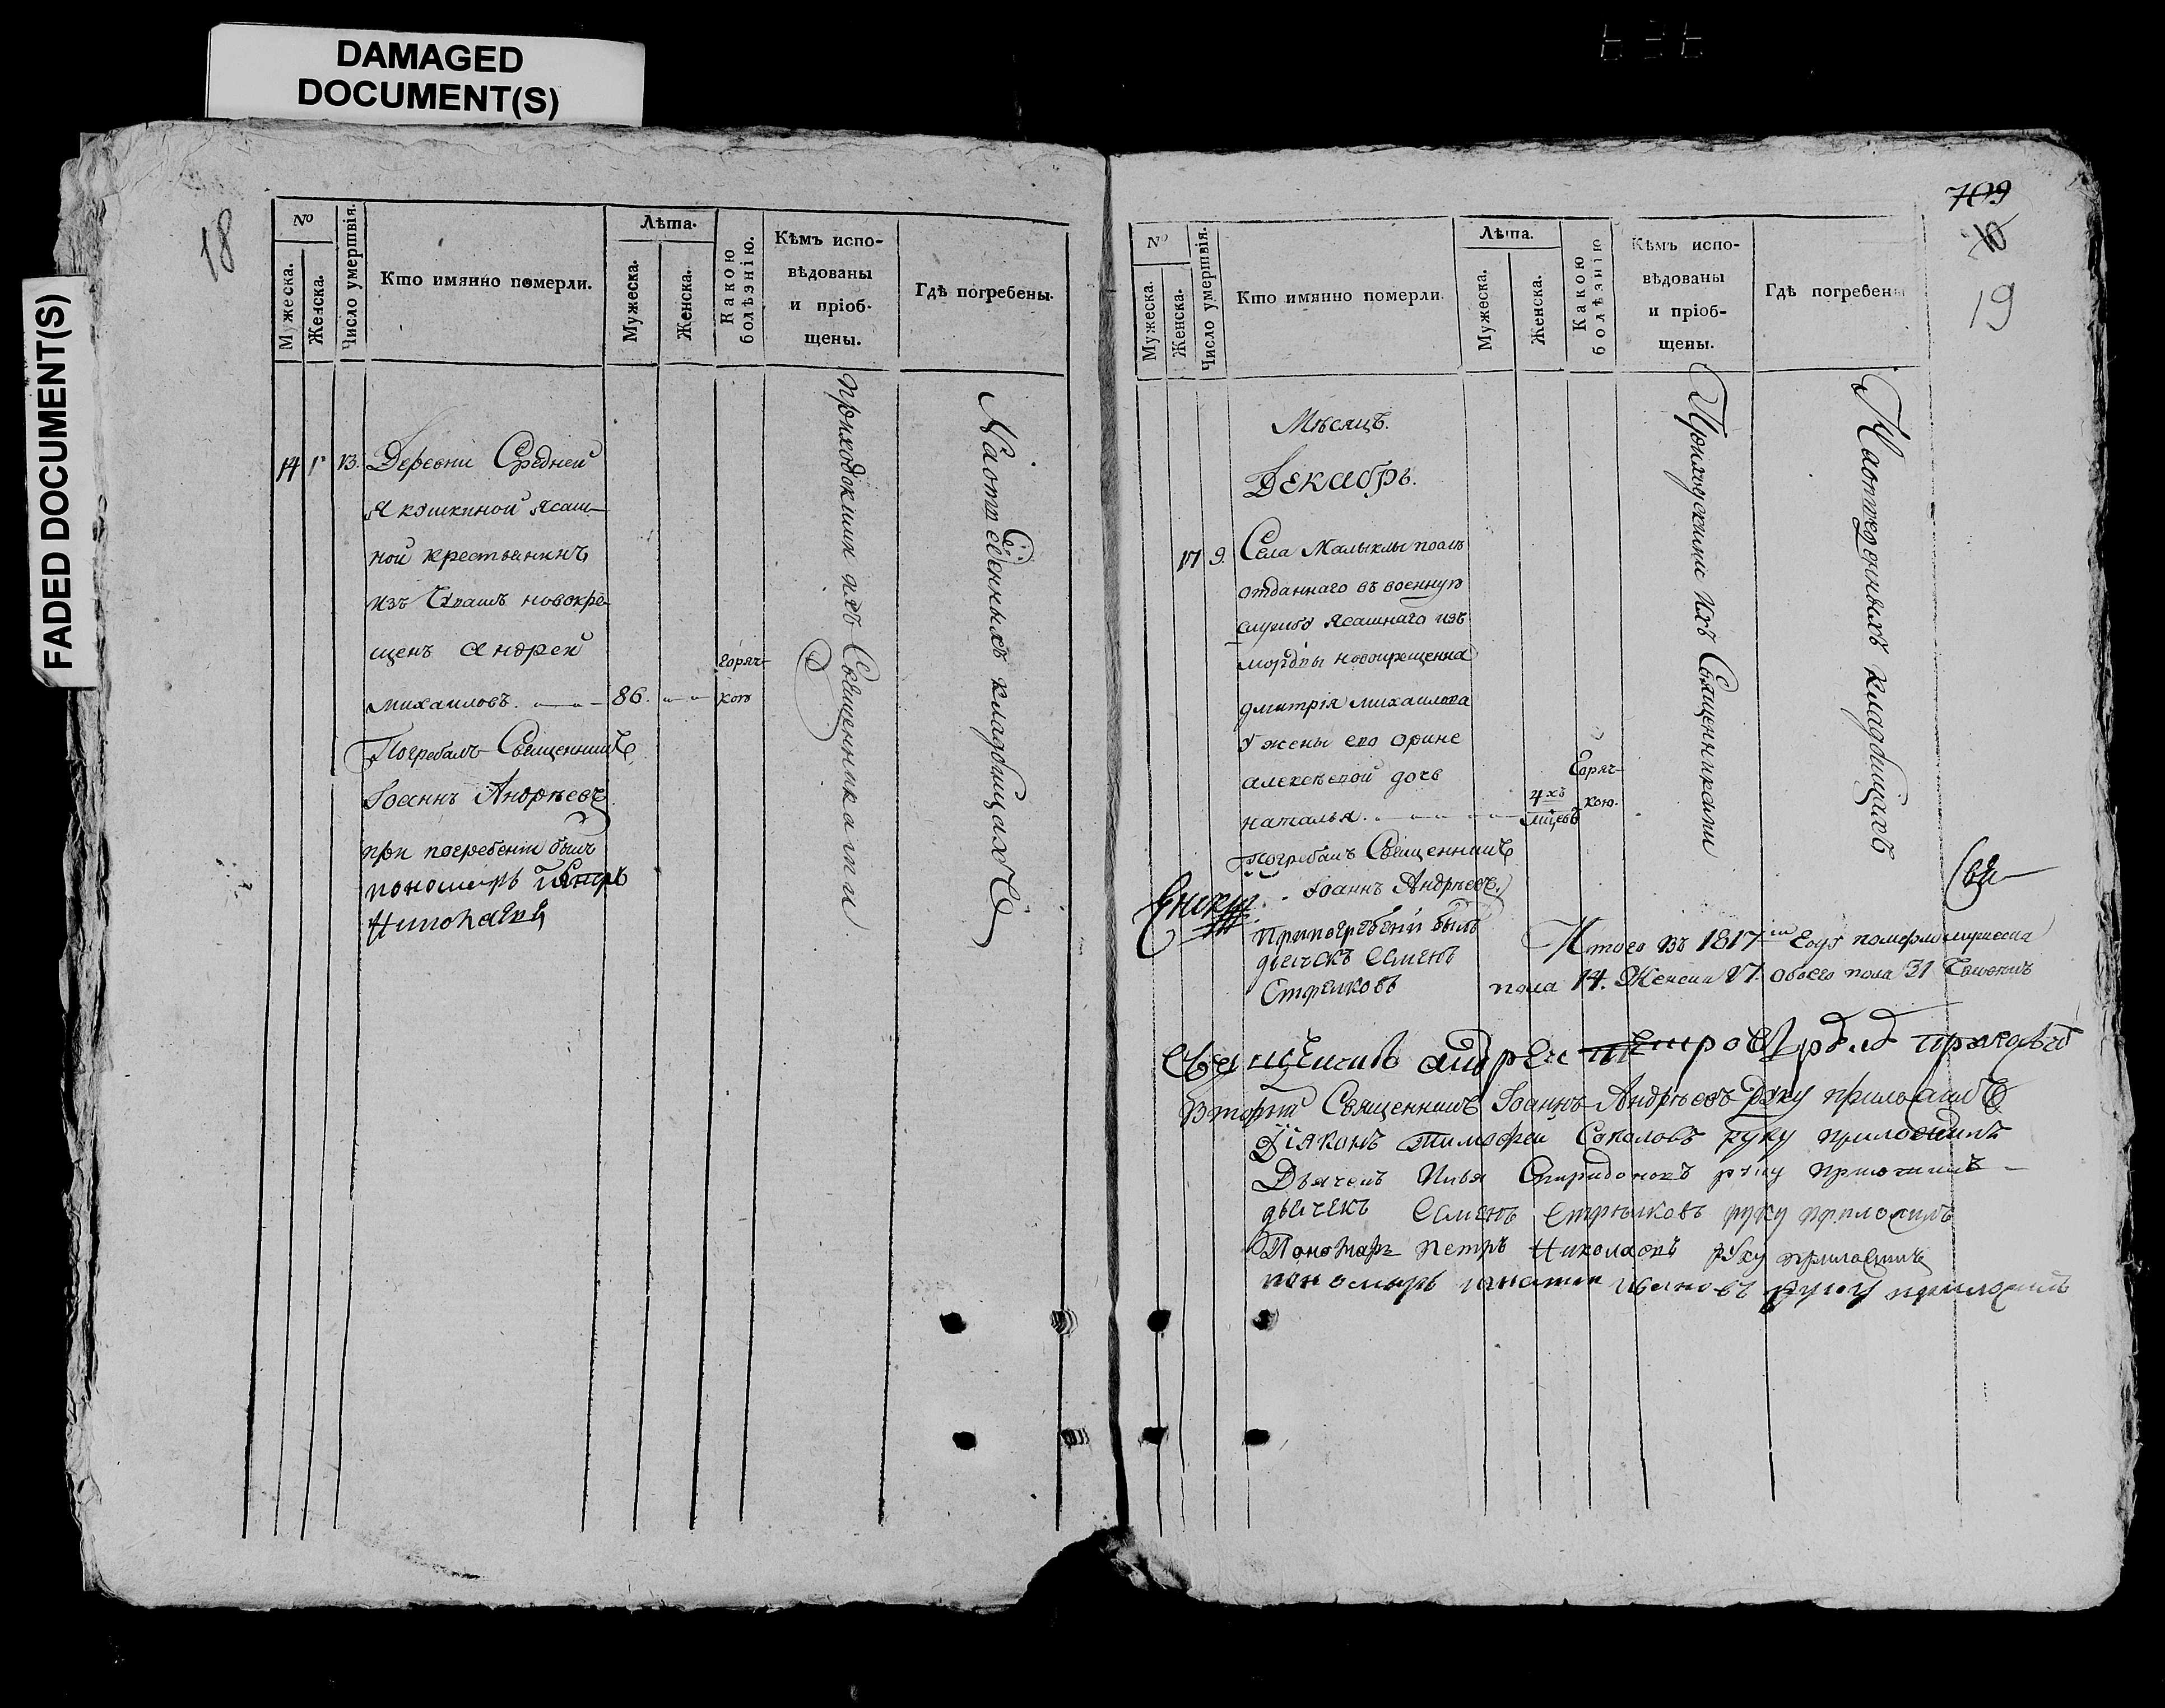 DAMAGED
DOCUMENT(S)
FADED DOCUMENT(S)
18
№
Мужеска.
Женска.
Число умертвія.
Кто имянно померли.
Лѣта.
Мужеска.
Женска.
Какою
болѣзнію.
Кѣмъ испо-
вѣдованы
и пріоб-
щены.
Гдѣ погребены.
14 13. Деревни Средней
Якошкиной Ясаш-
ной крестьянинъ
изъ Чуашъ новокре-
щенъ Андрей
михаиловъ. 86. горяч-
кою
Погребалъ Священникъ
Іоаннъ Андрѣевъ
при погребеніи былъ
пономарь Петръ
Николаевъ
приходскими ихъ Священниками
На отведенныхъ кладбищахъ
709
10
19
№
Мужеска.
Женска.
Число умертвія.
Кто имянно померли.
Лѣта.
Мужеска.
Женска.
Какою
болѣзнію
Кѣмъ испо-
вѣдованы
и пріоб-
щены.
Гдѣ погребены
Мѣсяцъ.
Декабрь.
17 9. Села Малыклы
отданнаго въ военную
службу Ясашнаго изъ
мордвы новокрещенна
дмитрія михаилова
у жены его орине
алексѣевой дочь
наталья. 4хъ мцевъ Горяч-
кою.
Погребалъ Священникъ
Іоаннъ Андрѣевъ.
При погребеніи былъ
дьячекъ Семенъ
Стрелковъ
Приходскими ихъ Священниками
На отведенныхъ кладбищахъ
Свя-
Итого въ 1817м Году померло мужеска
пола 14. Женска 17. обоего пола 31 Человекъ
Священникъ андреи петровъ руку приложилъ
Вторый Священникъ Іоаннъ Андрѣевъ руку приложилъ
Діяконъ тимофеи Соколовъ руку приложилъ
Дьячекъ Илья Спиридоновъ руку приложилъ
дьячекъ Семенъ Стрелковъ руку приложилъ
Пономарь Петръ Николаевъ руку приложилъ
пономарь игнатии ивановъ руку приложилъ